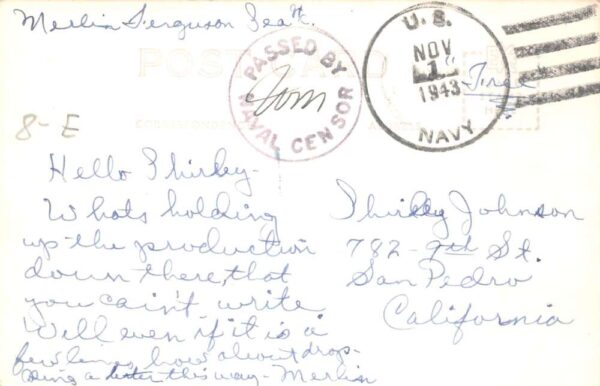 Merlin Ferguson Sea 2/c.
PASSED BY
NAVAL CENSOR
U. S.
NOV
1
1943
NAVY
Free
POST CARD
8-E
CORRESPONDENCE
Hello Shirley-
Whats holding
up the production
down there, that
you cain't write
Well even if it is a
few lines how about drop-
ping a letter this way - Merlin
Shirley Johnson
782-9th St.
San Pedro
California